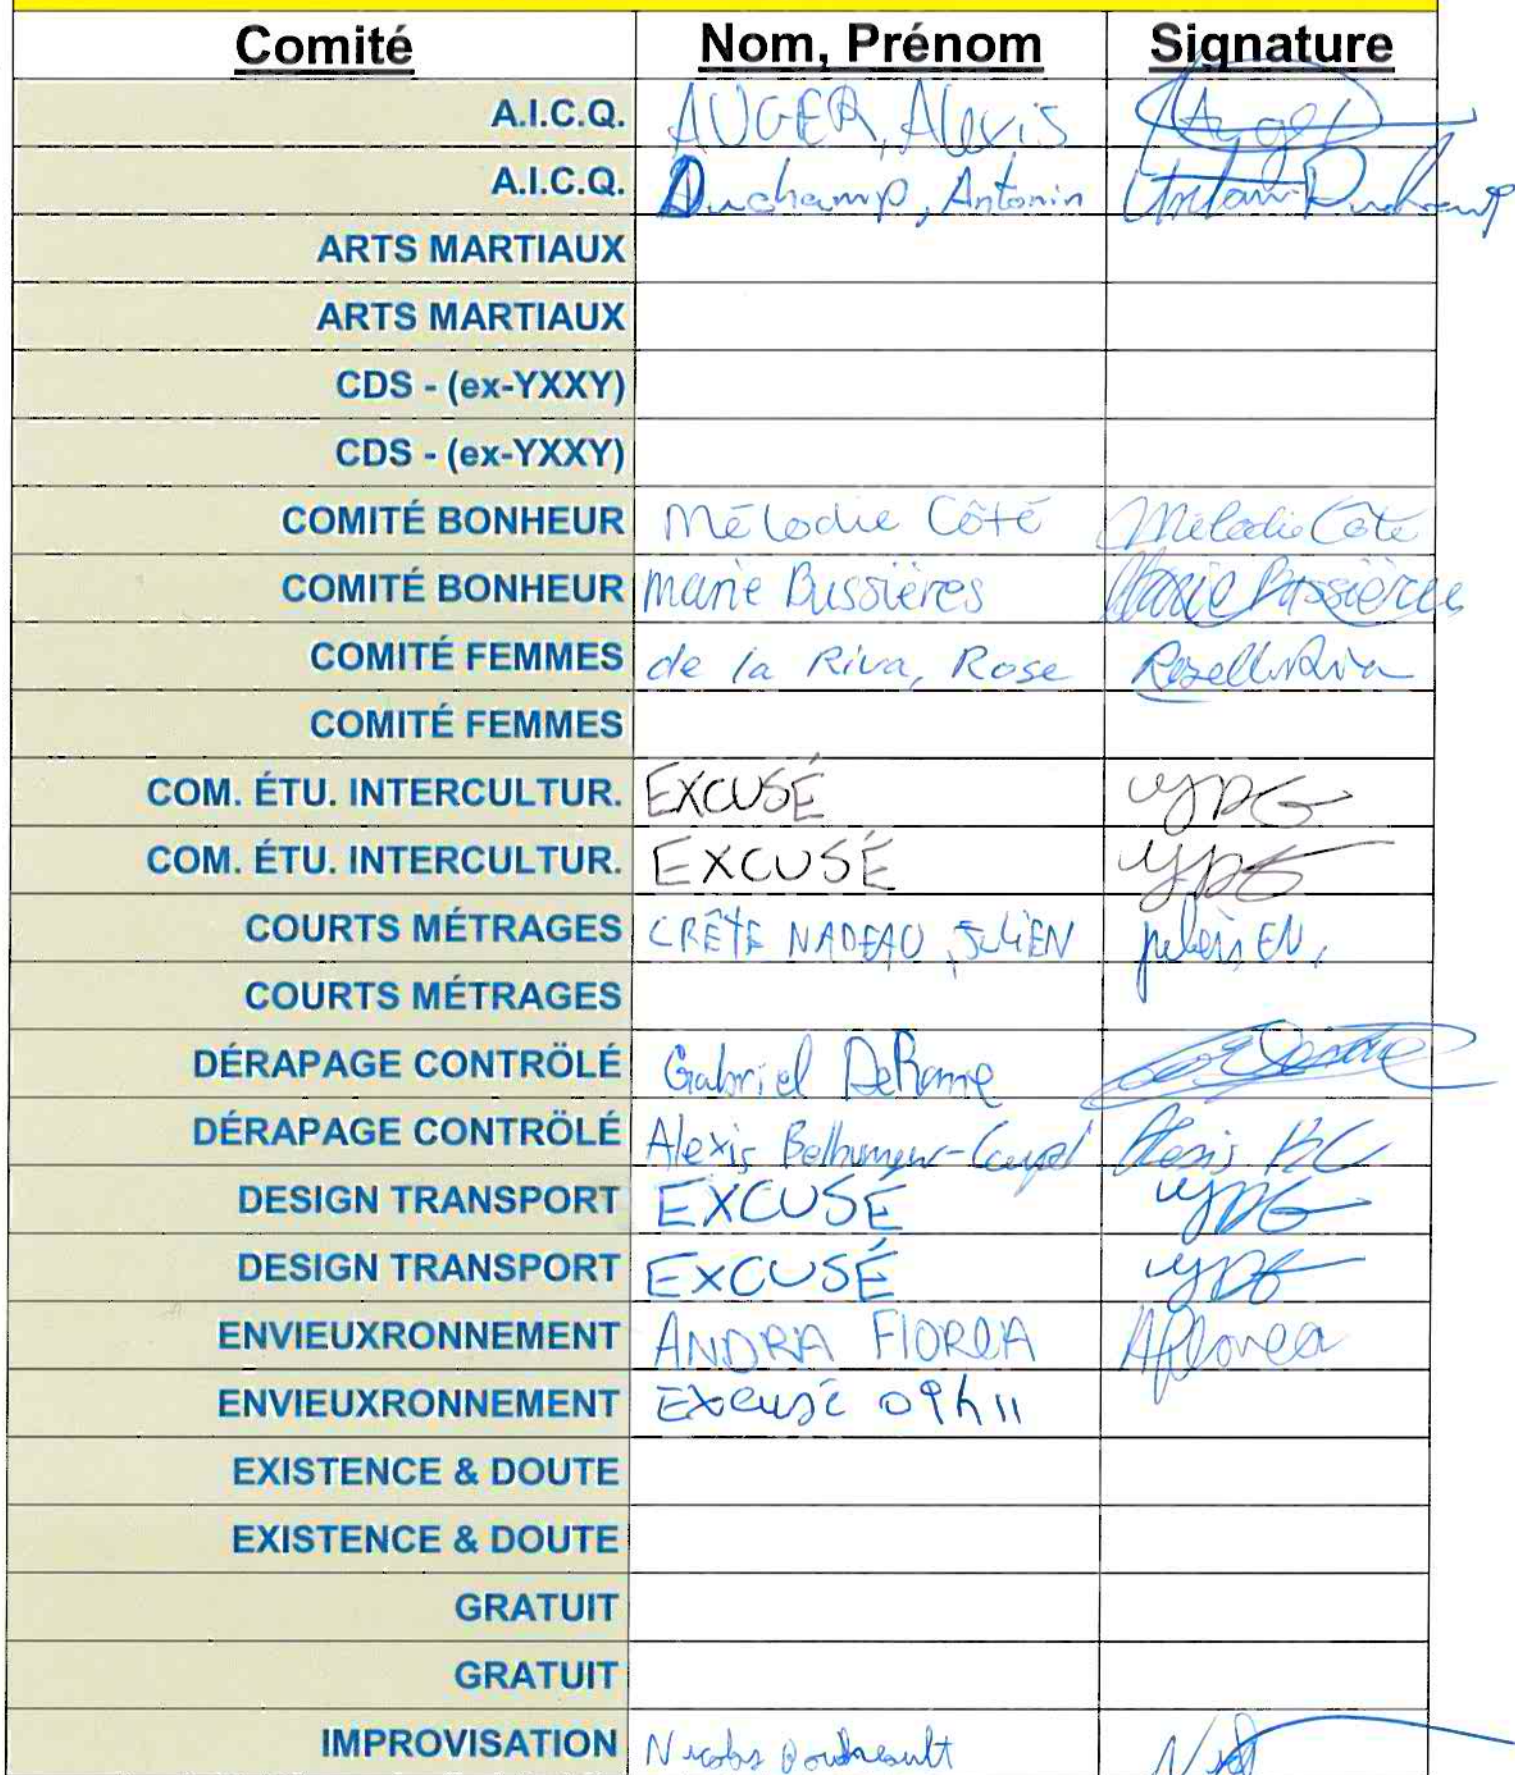 Comité Nom, Prénom Signature
A.I.C.Q. AUGER, Alexis Auger
A.I.C.Q. Duchamp, Antonin Antonin Duchamp
ARTS MARTIAUX
ARTS MARTIAUX
CDS - (ex-YXXY)
CDS - (ex-YXXY)
COMITÉ BONHEUR Mélodie Côté Mélodie Côté
COMITÉ BONHEUR Marie Bussières Marie Bussières
COMITÉ FEMMES de la Riva, Rose
COMITÉ FEMMES
COM. ÉTU. INTERCULTUR. EXCUSÉ
COM. ÉTU. INTERCULTUR. EXCUSÉ
COURTS MÉTRAGES CRÊTE NADEAU, JULIEN
COURTS MÉTRAGES
DÉRAPAGE CONTRÖLÉ Gabriel DeRome
DÉRAPAGE CONTRÖLÉ Alexis Belhumeur- Alexis BC
DESIGN TRANSPORT EXCUSÉ
DESIGN TRANSPORT EXCUSÉ
ENVIEUXRONNEMENT ANDRA FlOREA AFlorea
ENVIEUXRONNEMENT Excusé 09h11
EXISTENCE & DOUTE
EXISTENCE & DOUTE
GRATUIT
GRATUIT
IMPROVISATION Nicolas Boudreault